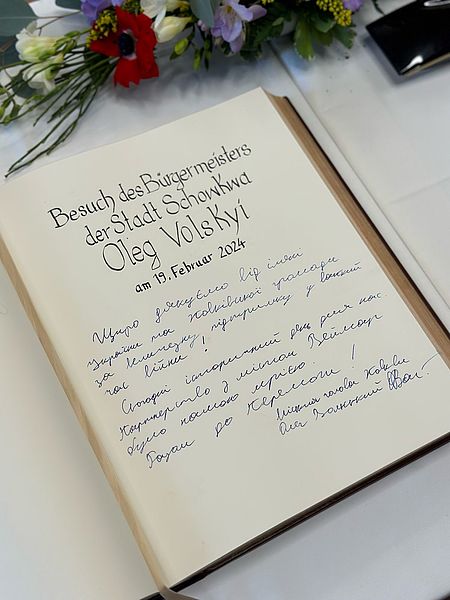 Besuch des Bürgermeisters
der Stadt Schowkwa
Oleg Volskyi
am 19. Februar 2024
Щиро дякуємо від імені
України та Жовківської громади
за велику підтримку у важкий
час війни!
Сьогодні історичний день для нас.
Партнерство з містом
було нашою мрією.
Разом до Перемоги!
Міський голова Жовкви
Олег Вольський